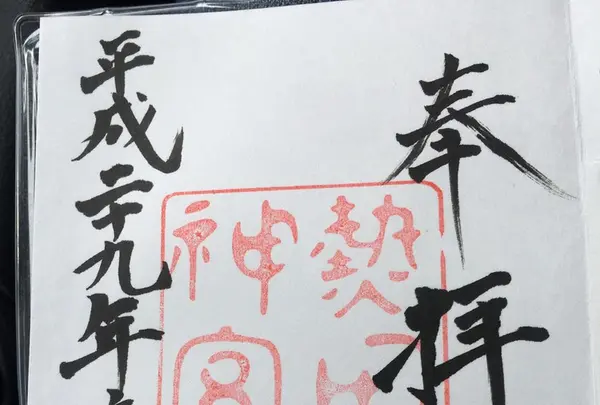 奉拝
熱
神宮
平成二十九年